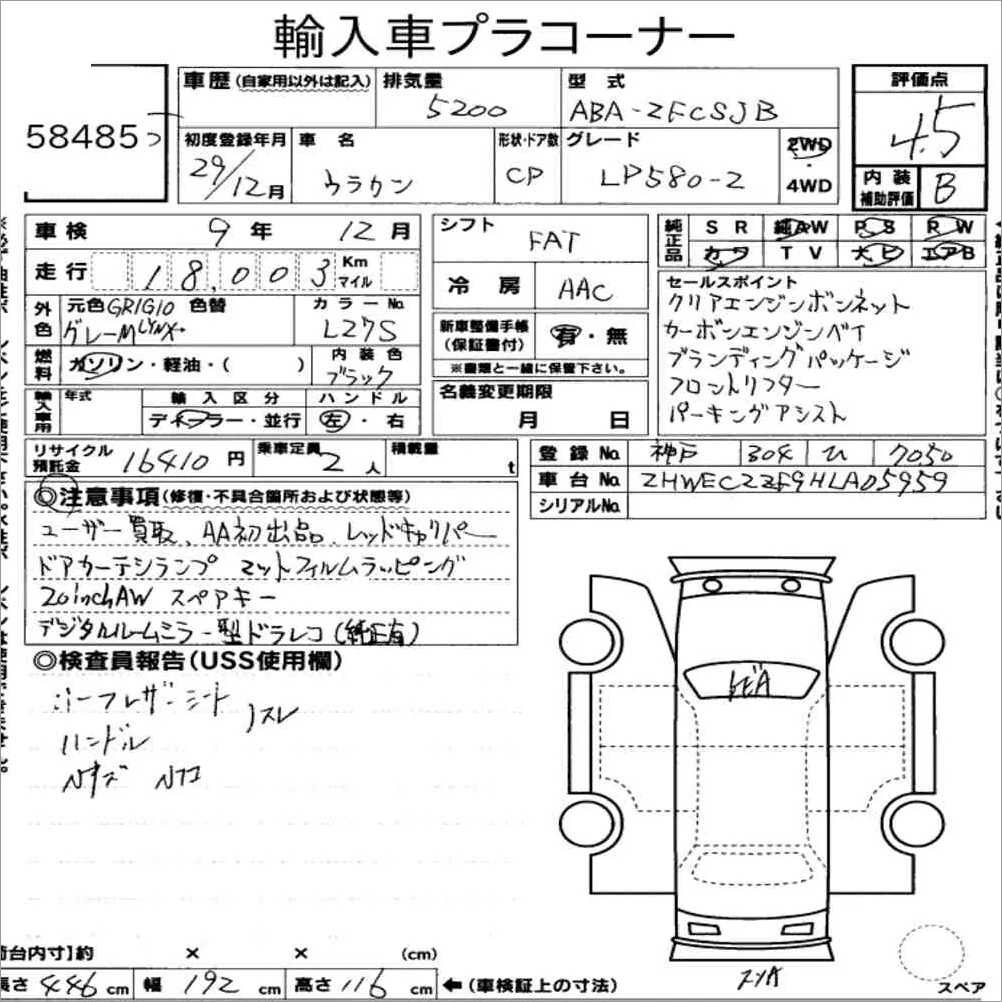 輸入車プラコーナー
58485
車歴 (自家用以外は記入)
排気量 5200
型式 ABA-ZFCSJB
評価点 4.5
初度登録年月 29/12月
車名 ウラカン
形状・ドア数 CP
グレード LP580-2
2WD・4WD
内装補助評価 B
車検 9年 12月
走行 18,003 Km マイル
シフト FAT
純正品 SR 純AW PS PW
カワ TV ナビ エアB
外色 元色 GRIGIO LYNX グレーM 色替
カラーNo. L27S
冷房 AAC
セールスポイント
クリアエンジンボンネット
カーボンエンジンベイ
ブランディングパッケージ
フロントリフター
パーキングアシスト
燃料 ガソリン・軽油・( )
内装色 ブラック
新車整備手帳(保証書付) 有・無
※書類と一緒に保管下さい。
輸入車用 年式 輸入区分 ディーラー・並行
ハンドル 左・右
名義変更期限 月 日
リサイクル預託金 16410円
乗車定員 2人
積載量 t
登録No. 神戸 304 ひ 7050
車台No. ZHWEC2ZF9HLA05959
シリアルNo.
◎注意事項(修復・不具合箇所および状態等)
ユーザー買取、AA初出品、レッドキャリパー
ドアカーテシランプ マットフィルムラッピング
20inchAW スペアキー
デジタルルームミラー型ドラレコ(純正有)
◎検査員報告(USS使用欄)
ハーフレザーシート
ハンドル スレ
Nキズ
荷台内寸】約 × × (cm)
長さ 446 cm 幅 192 cm 高さ 116 cm ←(車検証上の寸法)
スペア